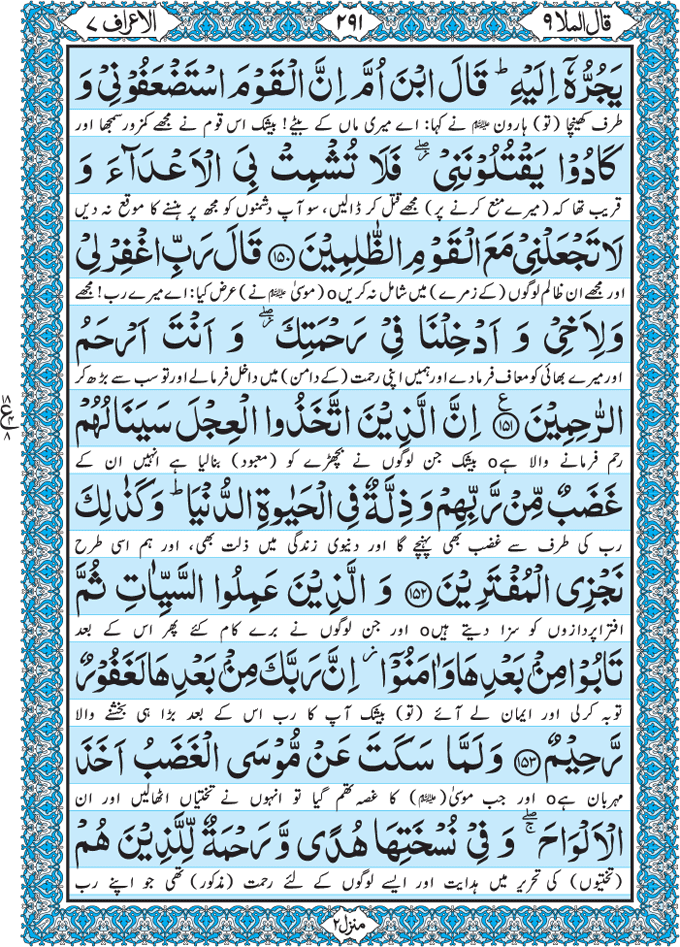 قال الملا ۹
۲۹۱
الاعراف ۷
يَجُرُّهٗۤ اِلَيْهِ ؕ قَالَ ابْنَ اُمَّ اِنَّ الْقَوْمَ اسْتَضْعَفُوْنِيْ وَ
طرف کھینچا (تو) ہارون ﷺ نے کہا: اے میری ماں کے بیٹے! بیشک اس قوم نے مجھے کمزور سمجھا اور
كَادُوْا يَقْتُلُوْنَنِيْ ۖ فَلَا تُشْمِتْ بِيَ الْاَعْدَآءَ وَ
قریب تھا کہ (میرے منع کرنے پر) مجھے قتل کر ڈالیں، سو آپ دشمنوں کو مجھ پر ہنسنے کا موقع نہ دیں
لَا تَجْعَلْنِيْ مَعَ الْقَوْمِ الظّٰلِمِيْنَ ﴿۱۵۰﴾ قَالَ رَبِّ اغْفِرْ لِيْ
اور مجھے ان ظالم لوگوں (کے زمرے) میں شامل نہ کریں o (موسیٰ ﷺ نے) عرض کیا: اے میرے رب! مجھے
وَ لِاَخِيْ وَ اَدْخِلْنَا فِيْ رَحْمَتِكَ ۖ وَ اَنْتَ اَرْحَمُ
اور میرے بھائی کو معاف فرما دے اور ہمیں اپنی رحمت (کے دامن) میں داخل فرما لے اور تو سب سے بڑھ کر
الرّٰحِمِيْنَ ﴿۱۵۱﴾ ع اِنَّ الَّذِيْنَ اتَّخَذُوا الْعِجْلَ سَيَنَالُهُمْ
رحم فرمانے والا ہے o بیشک جن لوگوں نے بچھڑے کو (معبود) بنا لیا ہے انہیں ان کے
غَضَبٌ مِّنْ رَّبِّهِمْ وَ ذِلَّةٌ فِي الْحَيٰوةِ الدُّنْيَا ؕ وَ كَذٰلِكَ
رب کی طرف سے غضب بھی پہنچے گا اور دنیوی زندگی میں ذلت بھی، اور ہم اسی طرح
نَجْزِي الْمُفْتَرِيْنَ ﴿۱۵۲﴾ وَ الَّذِيْنَ عَمِلُوا السَّيِّاٰتِ ثُمَّ
افترا پردازوں کو سزا دیتے ہیں o اور جن لوگوں نے برے کام کئے پھر اس کے بعد
تَابُوْا مِنْۢ بَعْدِهَا وَ اٰمَنُوْۤا ۫ اِنَّ رَبَّكَ مِنْۢ بَعْدِهَا لَغَفُوْرٌ
توبہ کر لی اور ایمان لے آئے (تو) بیشک آپ کا رب اس کے بعد بڑا ہی بخشنے والا
رَّحِيْمٌ ﴿۱۵۳﴾ وَ لَمَّا سَكَتَ عَنْ مُّوْسَى الْغَضَبُ اَخَذَ
مہربان ہے o اور جب موسیٰ (ﷺ) کا غصہ تھم گیا تو انہوں نے تختیاں اٹھا لیں اور ان
الْاَلْوَاحَ ۖۚ وَ فِيْ نُسْخَتِهَا هُدًى وَّ رَحْمَةٌ لِّلَّذِيْنَ هُمْ
(تختیوں) کی تحریر میں ہدایت اور ایسے لوگوں کے لئے رحمت (مذکور) تھی جو اپنے رب
منزل ۲